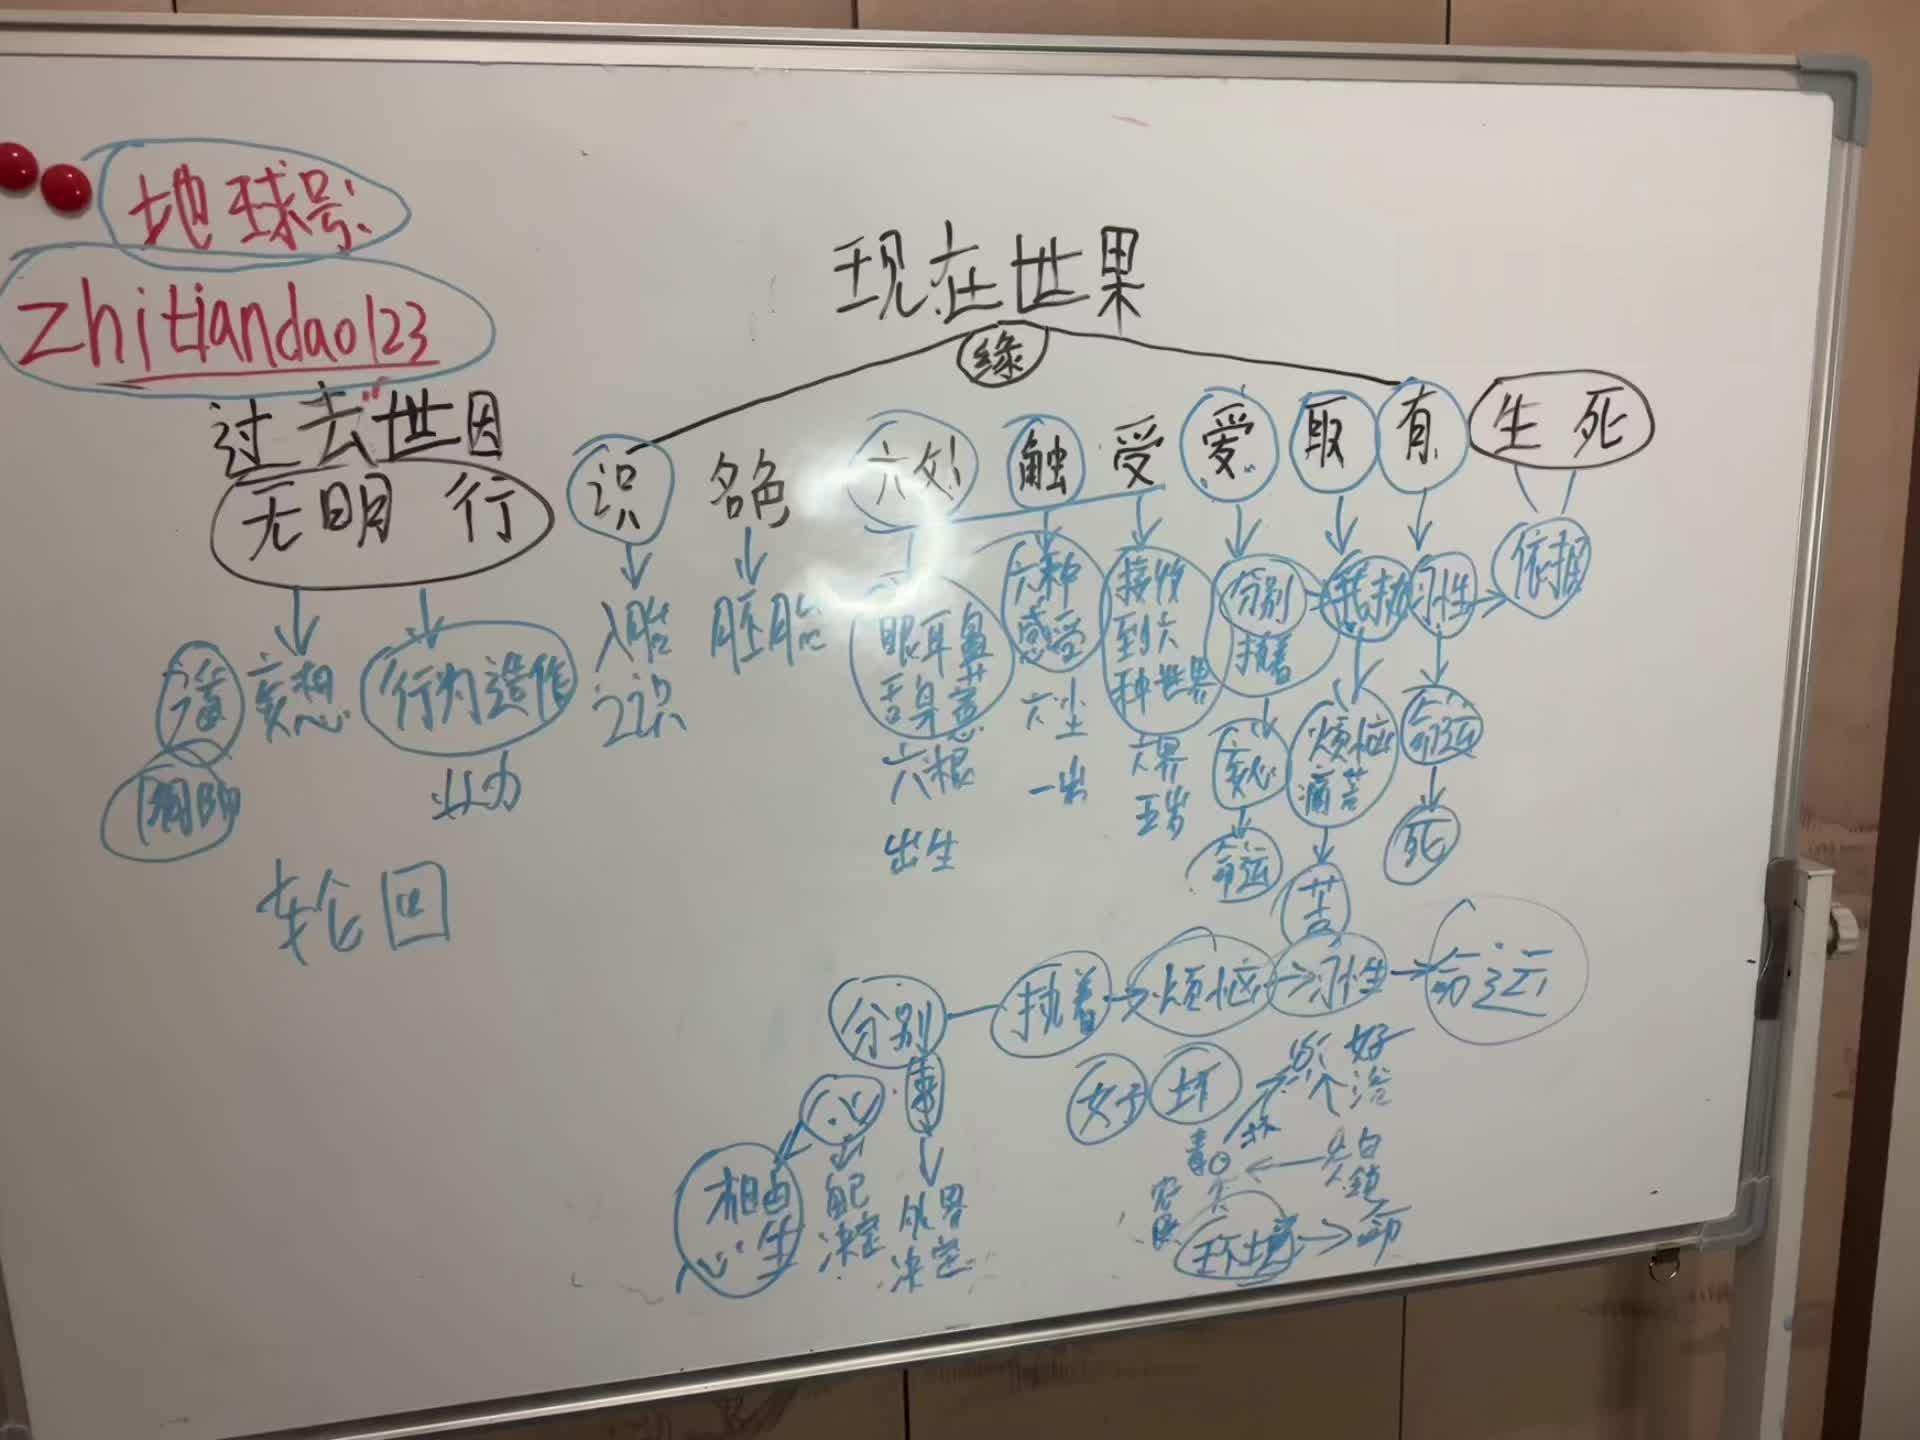 地球号:
zhitiandao123
现在世果
缘
过去世因
无明 行
识 名色 六处 触 受 爱 取 有 生 死
妄想
行为造作
业力
轮回
入胎
之识
胚胎
眼耳鼻
舌身意
六根
出生
六种
感受
六尘
一岁
接收
到六
种世界
六界
五岁
分别
执着
命运
我执
烦恼
痛苦
苦
习性
命运
死
依据
分别 执着 烦恼 习性 命运
心 事
相由
心生
自己
决定
外界
决定
好 坏
好
环境 命